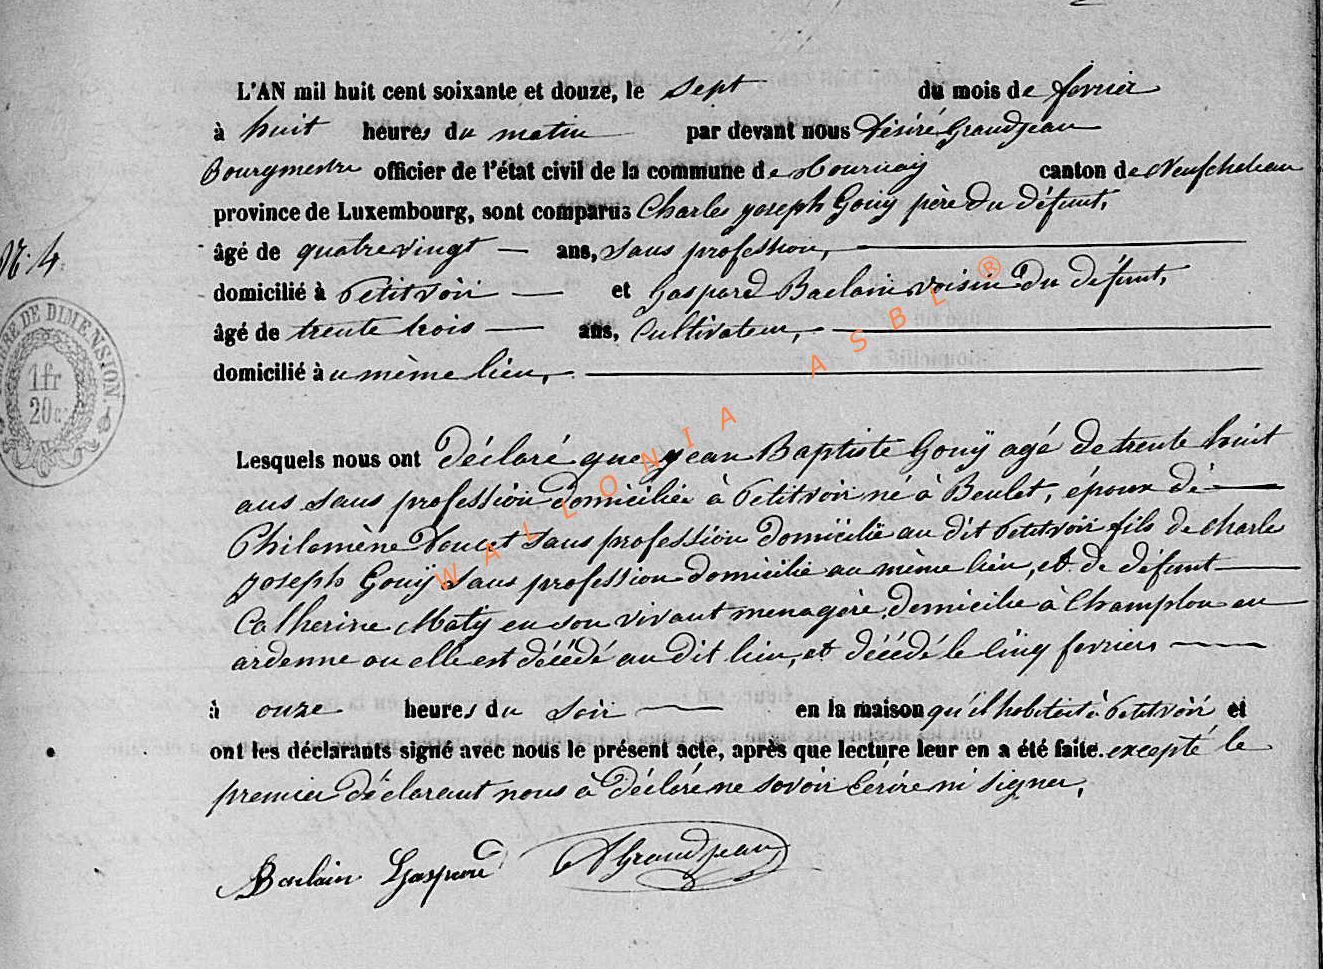 L'AN mil huit cent soixante et douze, le sept du mois de fevrier
à huit heures du matin par devant nous Désiré Grandjean
Bourgmestre officier de l'état civil de la commune de Tournay canton de Neufchateau
province de Luxembourg, sont comparus Charles joseph Gouÿ père du défunt,
N.° 4.
âgé de quatrevingt ans, sans profession,
domicilié à Petitvoir et Gaspard Baclain voisin du défunt,
âgé de trente trois ans, Cultivateur,
domicilié à u même lieu,
TIMBRE DE DIMENSION.
1fr
20c
Lesquels nous ont déclaré que jean Baptiste Gouÿ agé de trente huit
ans sans profession domicilié à Petitvoir né à Beulet, époux de
Philomène Poncet sans profession domicilié au dit Petitvoir fils de charle
joseph Gouÿ sans profession domicilié au même lieu, et de défunt
Catherine Maty en son vivant menagère, domicilie à Champlon en
ardenne ou elle est décédé au dit lieu, et décédé le cinq fevrier
à onze heures du soir en la maison qu'il habitait à Petitvoir et
ont les déclarants signé avec nous le présent acte, après que lecture leur en a été faite. excepté le
premier déclarant nous à déclaré ne savoir écrire ni signer,
Baclain Gaspard DGrandjean
WALLONIA ASBL ®